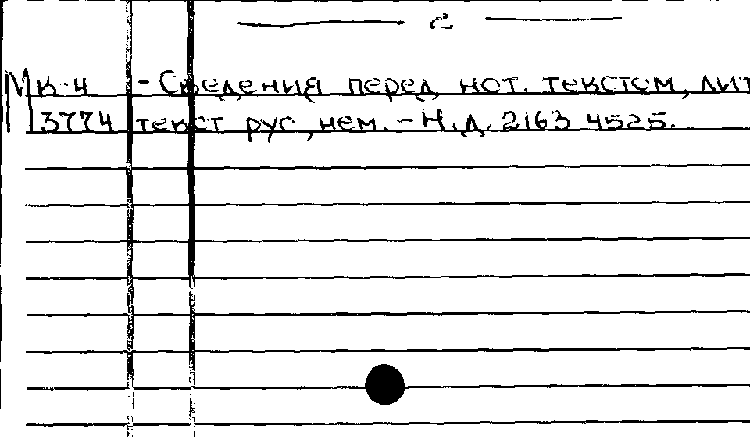 2
Мк-4 - Сведения перед нот. текстом, лит
3774 текст рус, нем. - Н.д. 2163 4525.